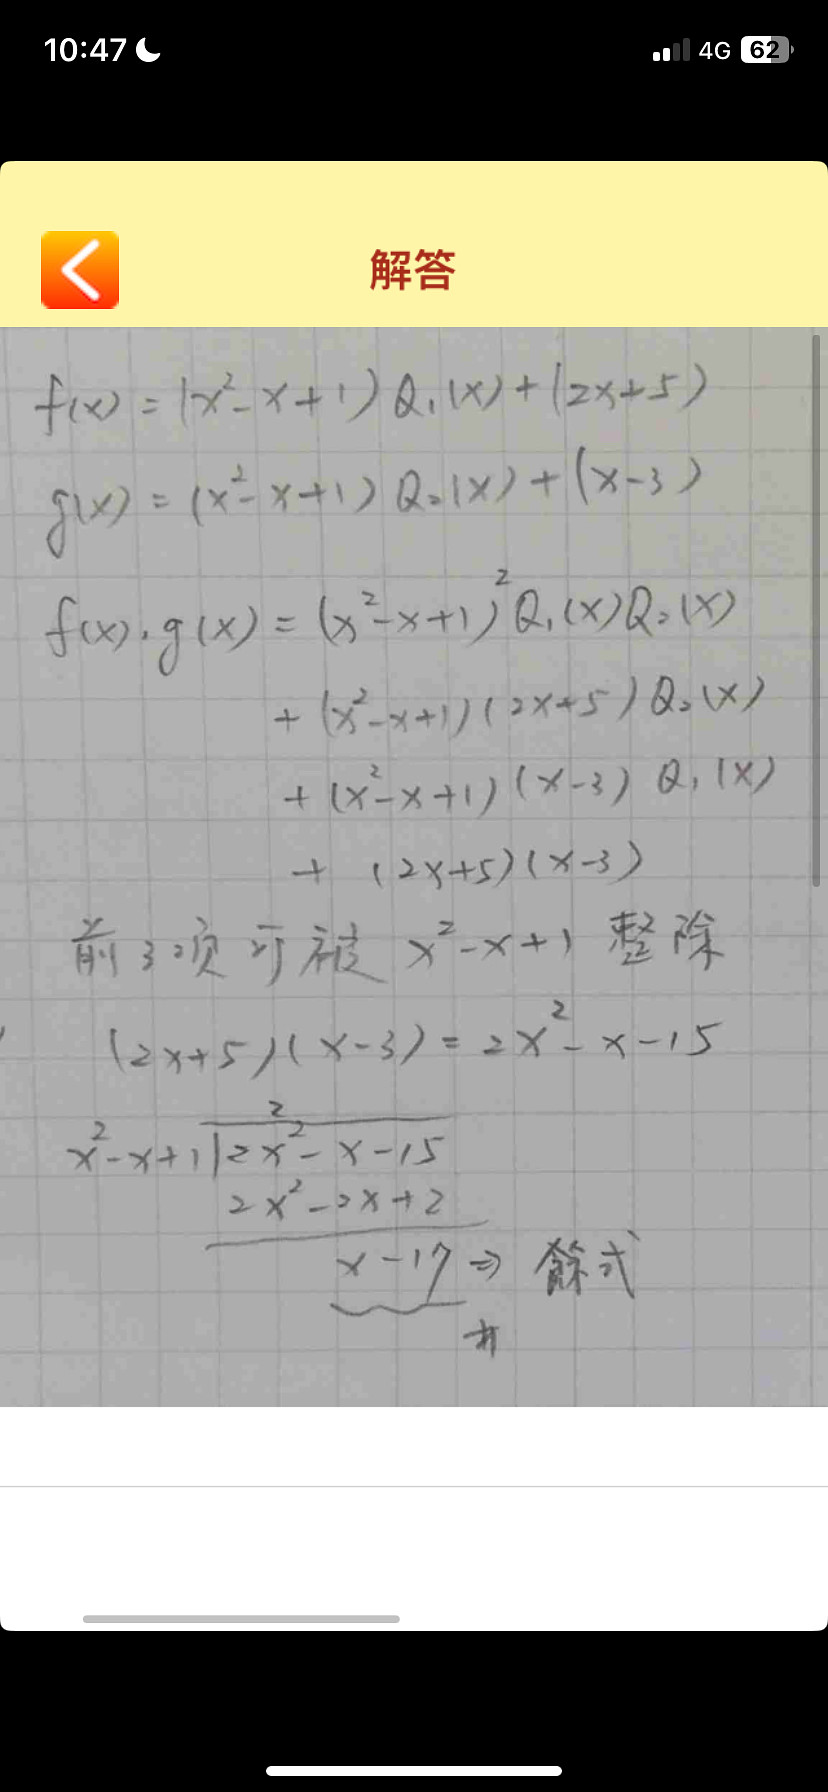 10:47 4G 62
解答
f(x) = (x²-x+1) Q₁(x) + (2x+5)
g(x) = (x²-x+1) Q₂(x) + (x-3)
f(x)·g(x) = (x²-x+1)² Q₁(x) Q₂(x)
+ (x²-x+1)(2x+5) Q₂(x)
+ (x²-x+1)(x-3) Q₁(x)
+ (2x+5)(x-3)
前3項可被 x²-x+1 整除
(2x+5)(x-3) = 2x²-x-15
2
x²-x+1 2x²-x-15
2x²-2x+2
x-17 ⇒ 餘式
#